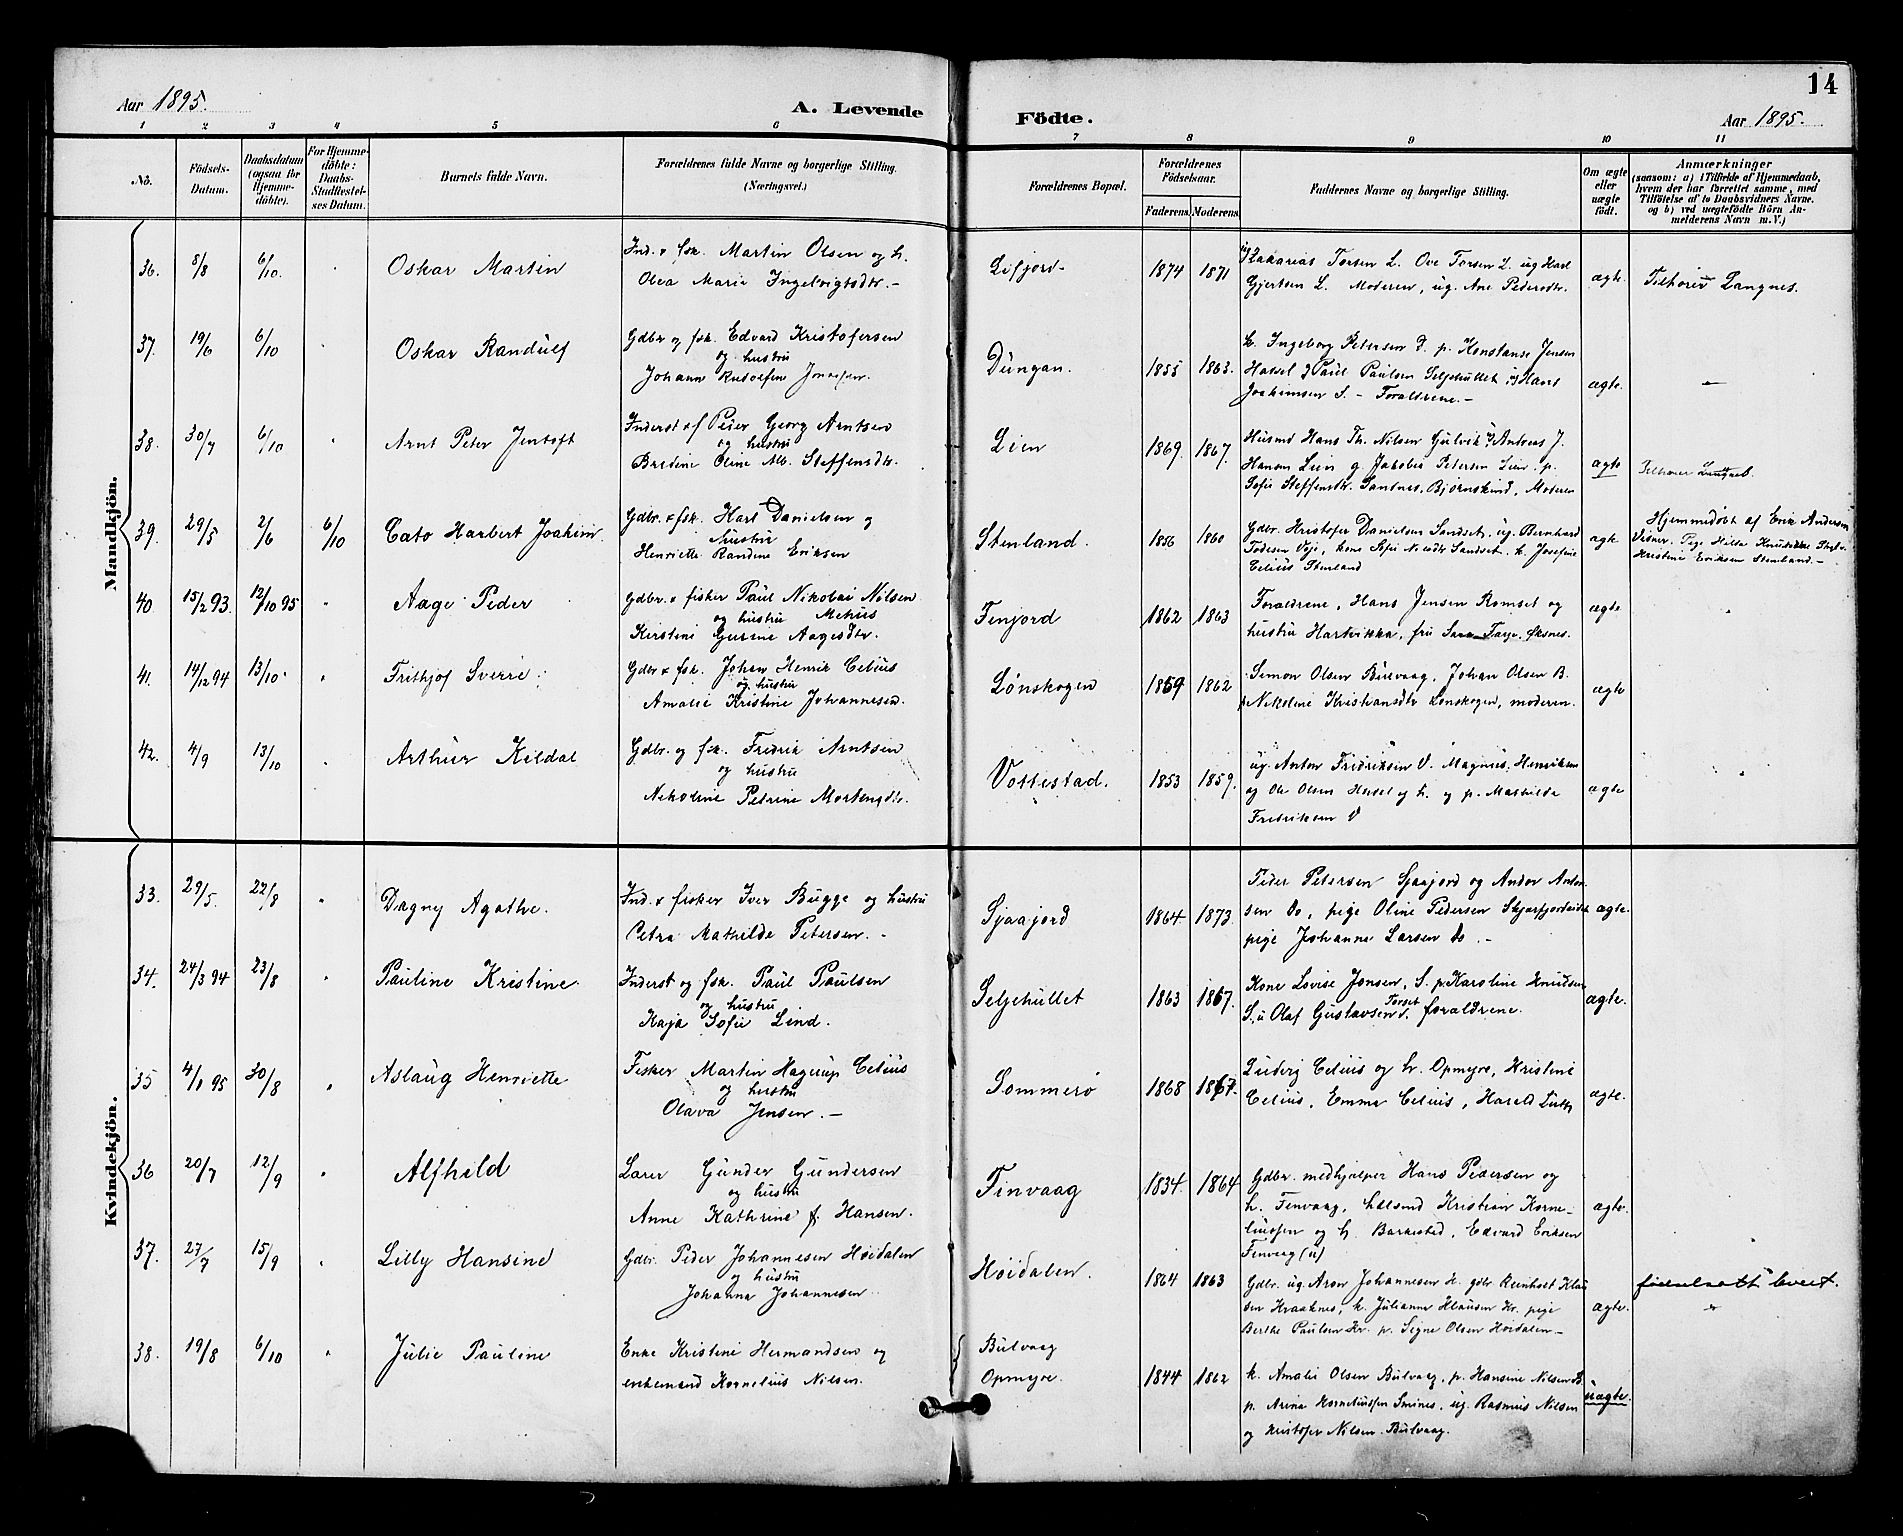 14
Aar 1895.
A. Levende
Födte.
Aar 1895.
1 2 3 4 5 6 7 8 9 10 11
No.
Födsels-Datum.
Daabsdatum (ogsaa for Hjemmedöbte).
For Hjemmedöbte: Daabs-Stadfæstelses Datum.
Barnets fulde Navn.
Forældrenes fulde Navne og borgerlige Stilling.
(Næringsvei.)
Forældrenes Bopæl.
Forældrenes Födselsaar.
Faderens. Moderens.
Faddernes Navne og borgerlige Stilling.
Om ægte eller uægte födt.
Anmærkninger
(saasom: a) i Tilfælde af Hjemmedaab, hvem der har forrettet samme, med Tilföielse af to Daabsvidners Navne. og b) ved uægtefödte Börn Anmelderens Navn m. V.)
Mandkjön.
36. 8/8 6/10 Oskar Martin
Ind. & fsk. Martin Olsen og h.
Olea Marie Ingelvigtsdtr. -
Lifjord 1874 1871
ug Zakarias Torsen L. Ove Torsen L. ug Karl
Gjertsen L. Moderen, ug. Ane Pedersdtr.
ægte Tilhører Langnes.
37. 19/6 6/10 Oskar Randulf
Gdbr og fsk. Edvard Kristofersen
og hustru
Johann Rudolfine
Düngan. 1855 1863.
k. Ingeborg Petersen D. p. Konstanse Jensen
Hassel g Paul Paulsen Seljehullet ug Hans
Joakimsen S. - Forældrene. -
ægte.
38. 30/7 6/10 Arnt Peter Jentoft
Inderst & f Peder Georg Arntsen
og hustru
Bredine Oline Alb. Steffensdtr.
Lien 1869. 1867.
Husmd Hans Th. Nilsen Gulvik ug Andreas J.
Hansen Lien g. Jakobia Petersen Lien. p.
Sofie Steffensdtr. Santnes, Bjørnskind, Moderen
ægte Tilhører Langnes.
39. 29/5 2/6 6/10 Cato Harbert Joakim
Gdbr. & fsk. Karl Danielsen og
hustru
Henriette Randine Eriksen
Stenland. 1856 1860
Gdbr. Kristofer Danielsen Sandset, ug. Bernhard
Todesen Veje, kone Sofie Nilsdtr Sandset. k. Josefine
Celius Stenland
ægte
Hjemmedøbt af Erik Andersen
Vidner. Pige Hilda Knudsen
Kristine Eriksen Stenland. -
40. 15/2 93. 12/10 95 Aage Peder
Gdbr. & fisker Paul Nikolai Nilsen
og hustru Mehus
Kirstine Gurine Aagesdtr.
Finjord 1862 1863
Forældrene, Hans Jensen Romset og
hustru Hartvikka, frü Sara Farje. Øksnes.
ægte
41. 14/12 94 13/10 Frithjof Sverre
Gdbr & fsk. Johan Henrik Celius
og hustru
Amalie Kristine Johannesen.
Lønskogen 1859 1862
Simon Olsen Bulvaag, Johan Olsen B.
p Nikoline Kristiansdtr Lønskogen, moderen.
ægte
42. 4/9 13/10 Arthur Kildal
Gdbr. og fsk. Fredrik Arntsen
og hustru
Nikoline Petrine Mortensdtr.
Vottestad. 1853 1859.
ug. Anton Fredriksen V. Magnus Henriksen
og Ole Olsen Hassel og h. og p. Mathilde
Fredriksen V
ægte
Kvindekjön.
33. 29/5. 22/8 Dagny Agathe.
Ind. & fisker Iver Bugge og hustru
Petra Mathilde Petersen. -
Sjaajord 1864 1873.
Peder Petersen Sjaajord og Andor Anton-
sen Do, pige Oline Pedersen Skjærfjorteidet
pige Johanne Larsen do. -
ægte.
34. 24/3 94 23/8 Pauline Kristine
Inderst og fsk. Paul Paulsen
og hustru
Kaja Sofie Lind.
Seljehullet 1863 1867.
Kone Lovise Jonsen, S. p. Karoline Knudsen
S., u Olaf Gustavsen Torset. forældrene.
ægte.
35 4/1 95 30/8 Aslaug Henriette
Fisker Martin Hagerup Celius
og hustru
Olava Jensen. -
Sommerø 1868 1867.
Ludvig Celius og h. Opmyre, Kristine
Celius, Emma Celius, Harald
ægte.
36 20/7 12/9 Alfhild
Lærer Gunder Gundersen
og hustru
Anne Kathrine f. Hansen.
Finvaag 1834. 1864
Gdbr. medhjælper Hans Pedersen og
h. Finvaag, husmd Kristian Korne-
liussen og h. Barkestad, Edvard Eriksen
Finvaag (u)
ægte.
37. 27/7 15/9 Lilly Hansine
Gdbr. Peder Johannesen Høidalen
og hustru
Johanna Johannesen.
Høidalen. 1864 1863
Gdbr. ug. Aron Johannesen H. gdbr. Reinholt Klau
sen Kraaknes, k. Julianne Klausen Kr. pige
Berthe Paulsen Kr. p. Signe Olsen Høidalen -
ægte.
38. 19/8 6/10 Julie Pauline
Enke Kristine Hermandsen og
enkemand Kornelius Nilsen.
Bulvaag
Opmyre. 1844 1862
k. Amalie Olsen Bulvaag, p. Hansine Nilsen B.
p. Arina Korneliussen Smines, ug. Rasmus Nilsen
og Kristofer Nilsen. Bulvaag.
uægte.